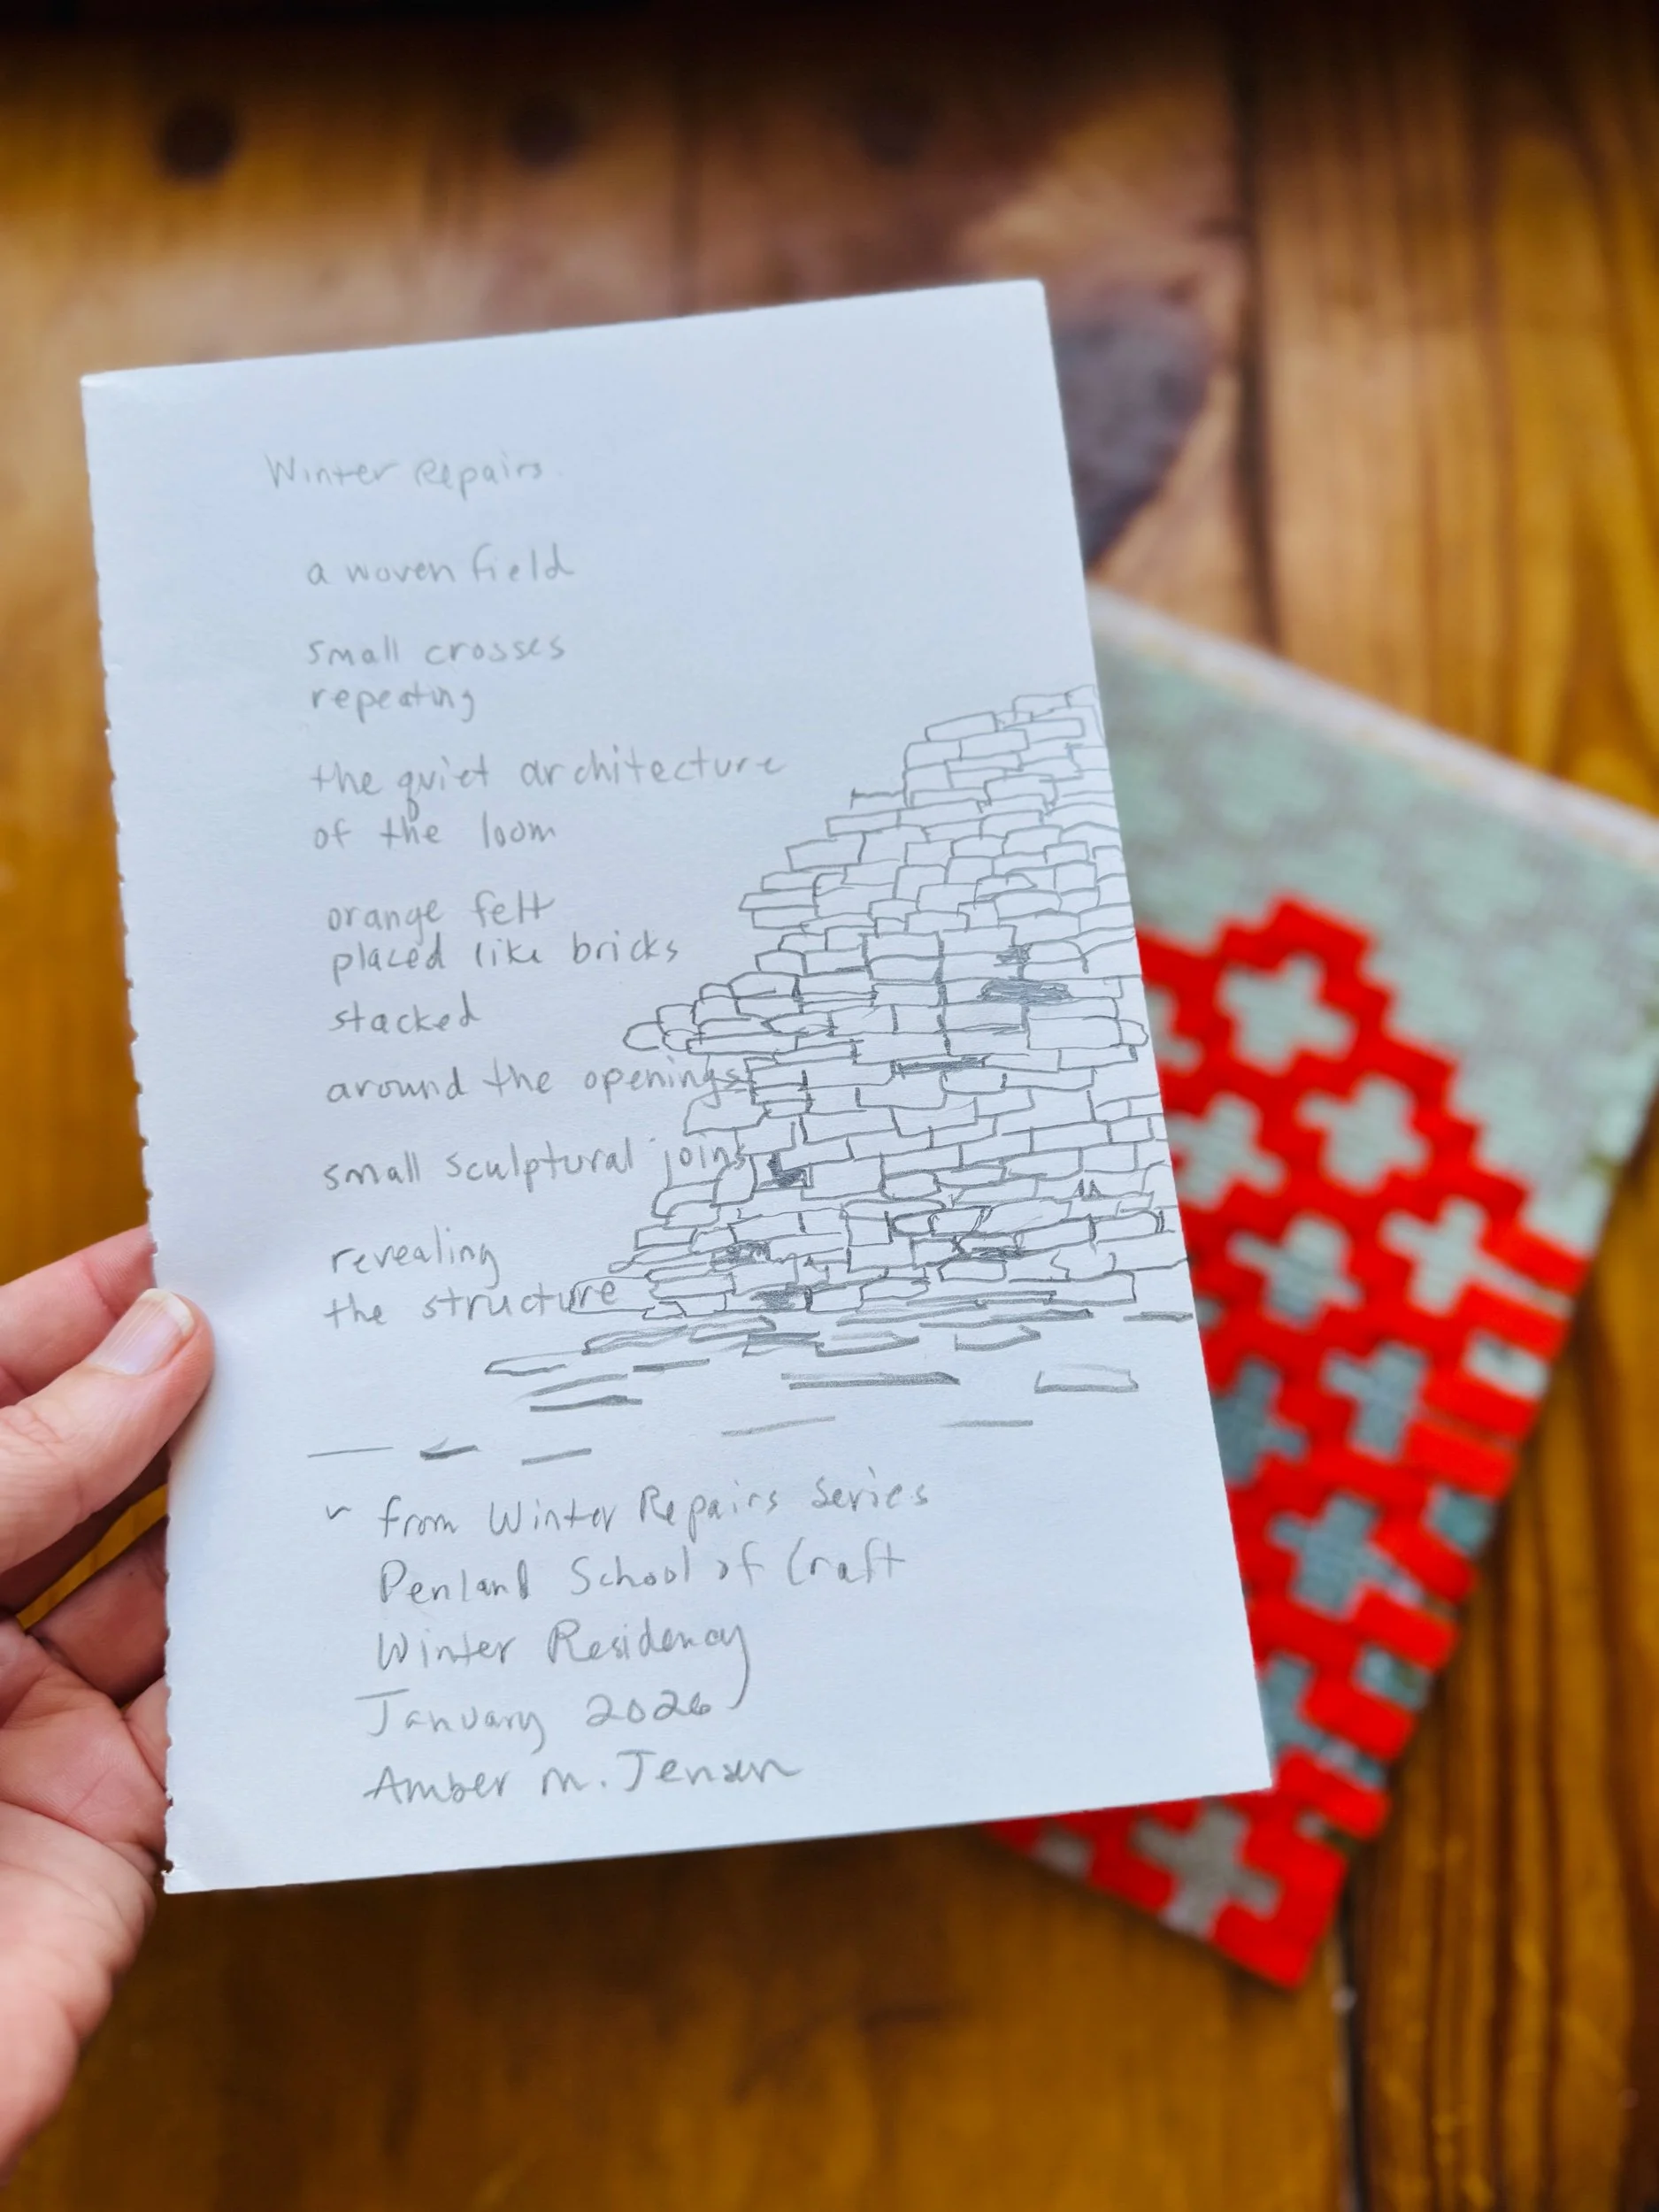 Winter Repairs
a woven field
small crosses
repeating
the quiet architecture
of the loom
orange felt
placed like bricks
stacked
around the openings
small sculptural joins
revealing
the structure
~ from Winter Repairs Series
Penland School of Craft
Winter Residency
January 2026
Amber M. Jensen